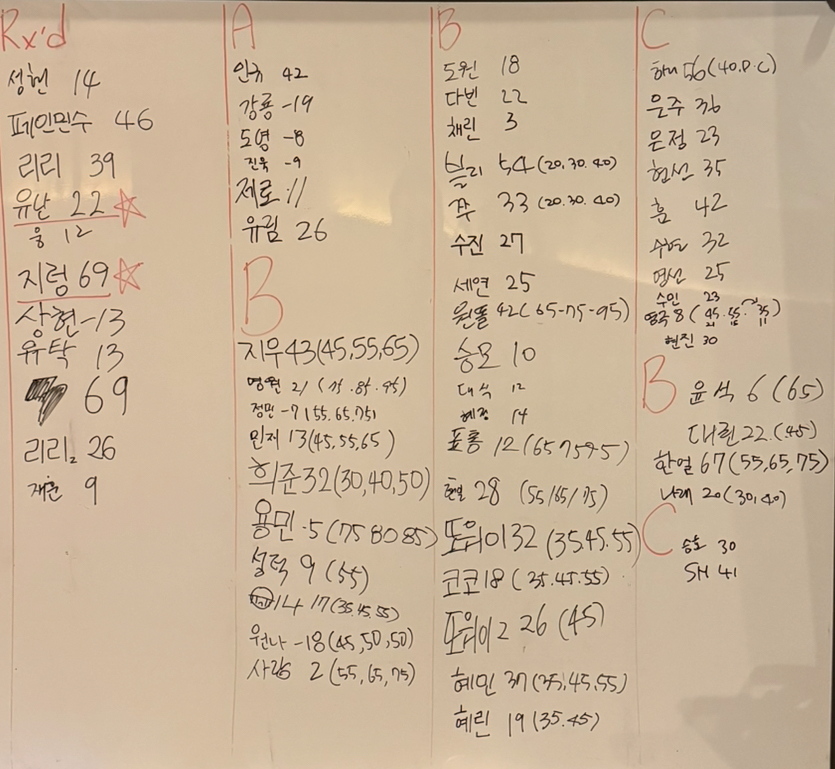 Rx'd
성현 14
페인민수 46
리리 39
유난 22
웅 12
지렁 69
상현 -13
유탁 13
69
리리2 26
재훈 9
A
인휘 42
강룡 -19
도영 -8
진욱 -9
제로 11
유림 26
B
지우 43(45,55,65)
명원 21 (75.85.95)
정민 -7 (55.65.75)
민재 13(45,55,65)
희준 32(30,40,50)
용민 -5 (75 80 85)
설덕 9 (55)
17(35.45.55)
원나 -18(45,50,50)
사랑 2 (55,65,75)
B
도원 18
다빈 22
채린 3
블리 54(20.30.40)
쭈 33 (20.30.40)
수진 27
세연 25
원똘 42(65-75-95)
승모 10
대식 12
혜정 14
표홍 12 (65 75 95)
28 (55/65/75)
또위이 32 (35.45.55)
코코 18 (35.45.55)
또위이2 26 (45)
혜민 37 (35,45,55)
혜린 19 (35.45)
C
하니 56(40.D.C)
은주 36
은정 23
현선 35
훈 42
수연 32
명선 25
수민 23
영국 8 (45.55.35)
현진 30
B
윤석 6 (65)
대린 22.(45)
한얼 67(55,65,75)
나래 20(30,40)
C
승호 30
SH 41